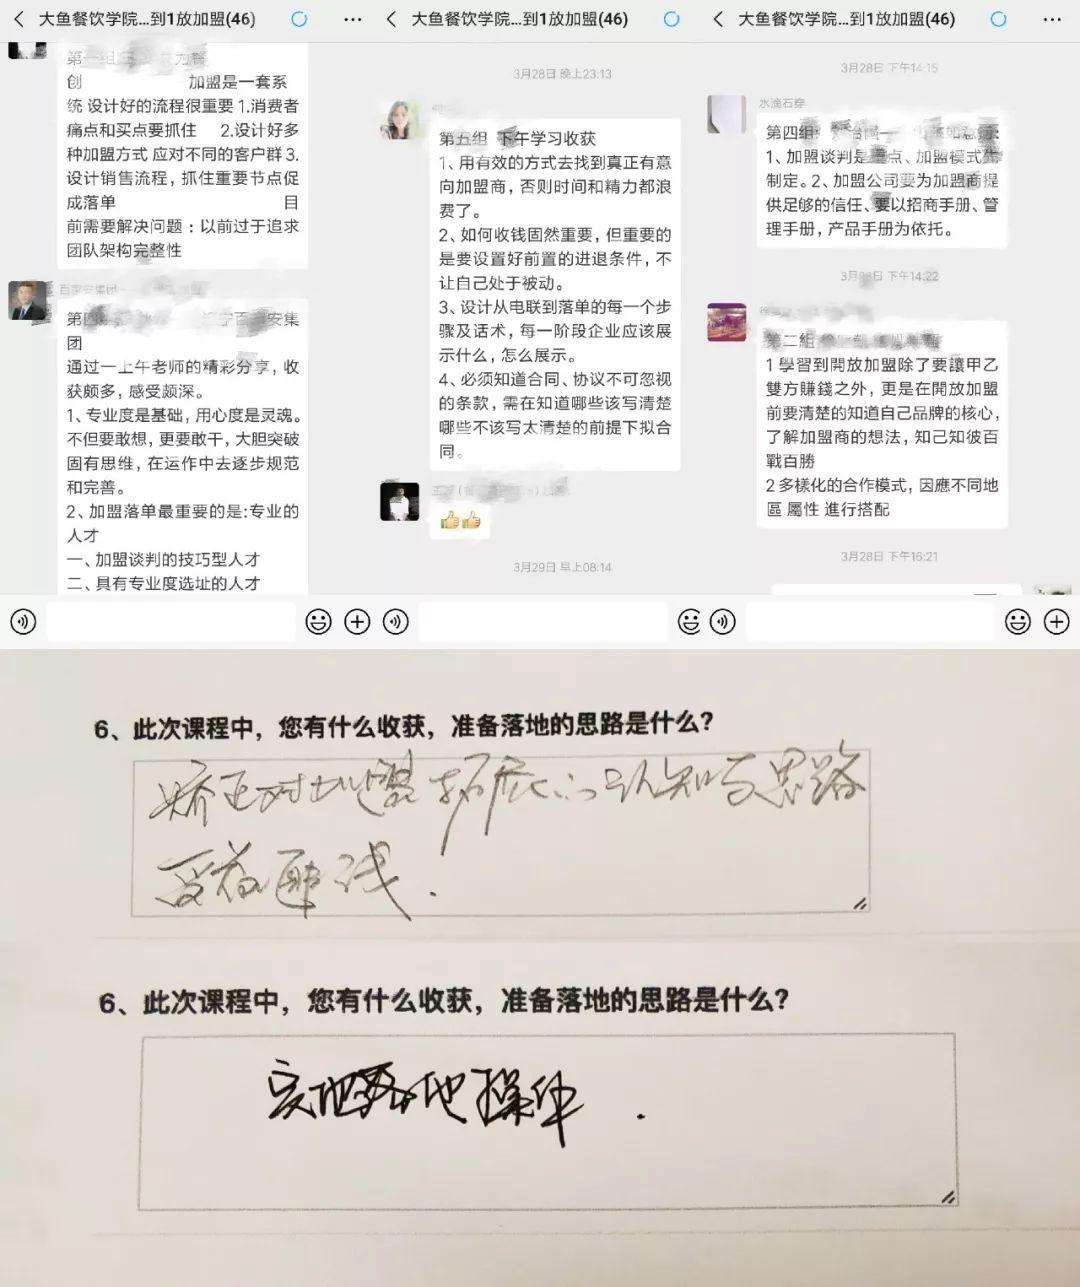 大鱼餐饮学院...到1放加盟(46)
第一组
创 加盟是一套系
统 设计好的流程很重要 1.消费者
痛点和买点要抓住 2.设计好多
种加盟方式 应对不同的客户群 3.
设计销售流程，抓住重要节点促
成落单 目
前需要解决问题：以前过于追求
团队架构完整性
百家安集团
团
通过一上午老师的精彩分享，收
获颇多，感受颇深。
1、专业度是基础，用心度是灵魂。
不但要敢想，更要敢干，大胆突破
固有思维，在运作中去逐步规范
和完善。
2、加盟落单最重要的是:专业的
人才
一、加盟谈判的技巧型人才
二、具有专业度选址的人才
大鱼餐饮学院...到1放加盟(46)
3月28日 晚上23:13
第五组 下午学习收获
1、用有效的方式去找到真正有意
向加盟商，否则时间和精力都浪
费了。
2、如何收钱固然重要，但重要的
是要设置好前置的进退条件，不
让自己处于被动。
3、设计从电联到落单的每一个步
骤及话术，每一阶段企业应该展
示什么，怎么展示。
4、必须知道合同、协议不可忽视
的条款，需在知道哪些该写清楚
哪些不该写太清楚的前提下拟合
同。
3月29日 早上08:14
大鱼餐饮学院...到1放加盟(46)
3月28日 下午14:15
水滴石穿
第四组
1、加盟谈判是重点、加盟模式
制定。2、加盟公司要为加盟商提
供足够的信任、要以招商手册、管
理手册，产品手册为依托。
3月28日 下午14:22
第二組
1 學習到開放加盟除了要讓甲乙
雙方賺錢之外，更是在開放加盟
前要清楚的知道自己品牌的核心，
了解加盟商的想法，知己知彼百
戰百勝
2 多樣化的合作模式，因應不同地
區 屬性 進行搭配
3月28日 下午16:21
6、此次课程中，您有什么收获，准备落地的思路是什么？
矫正对加盟拓展的认知与思路
受益匪浅.
6、此次课程中，您有什么收获，准备落地的思路是什么？
实地落地操作.